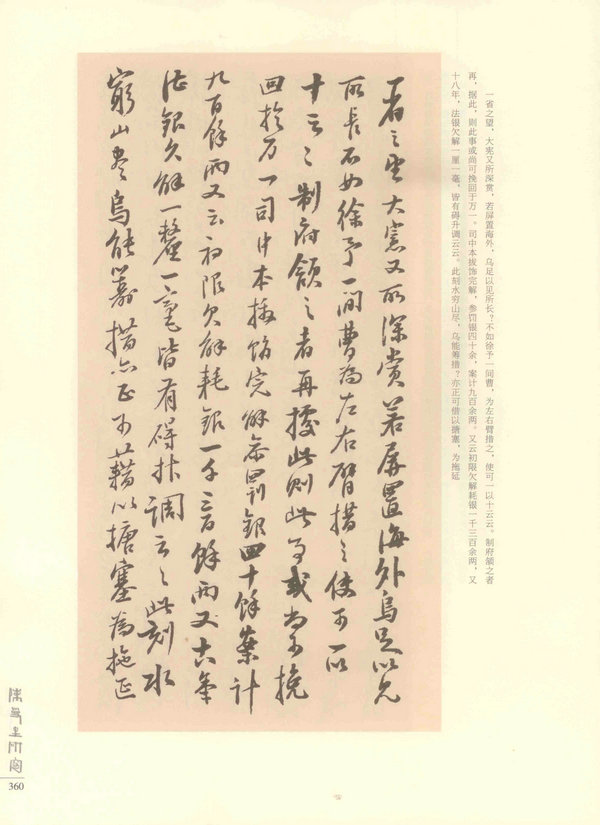 一省之望，大宪又所深赏，若屏置海外，乌足以见所长？不如徐予一间曹，为左右臂措之，使可一以十云云。制府颔之者
再，据此，则此事或尚可挽回于万一。司中本拔饰完解，参罚银四十余，案计九百余两。又云初限欠解耗银一千三百余两，又
十八年，法银欠解一厘一毫，皆有碍升调云云。此刻水穷山尽，乌能筹措？亦正可借以搪塞，为拖延
一省之望大憲又所深賞若屏置海外烏足以見
所長不如徐予一間曹為左右臂措之使可一以
十云云制府頷之者再據此則此事或尚可挽
回於万一司中本拔飾完解叅罰銀四十餘案計
九百餘兩又云初限欠解耗銀一千三百餘兩又十八年
法銀欠解一釐一毫皆有碍升調云云此刻水
窮山盡烏能籌措亦正可藉以搪塞為拖延
360